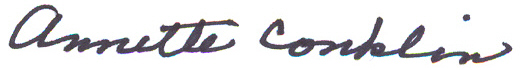 Annette Conklin